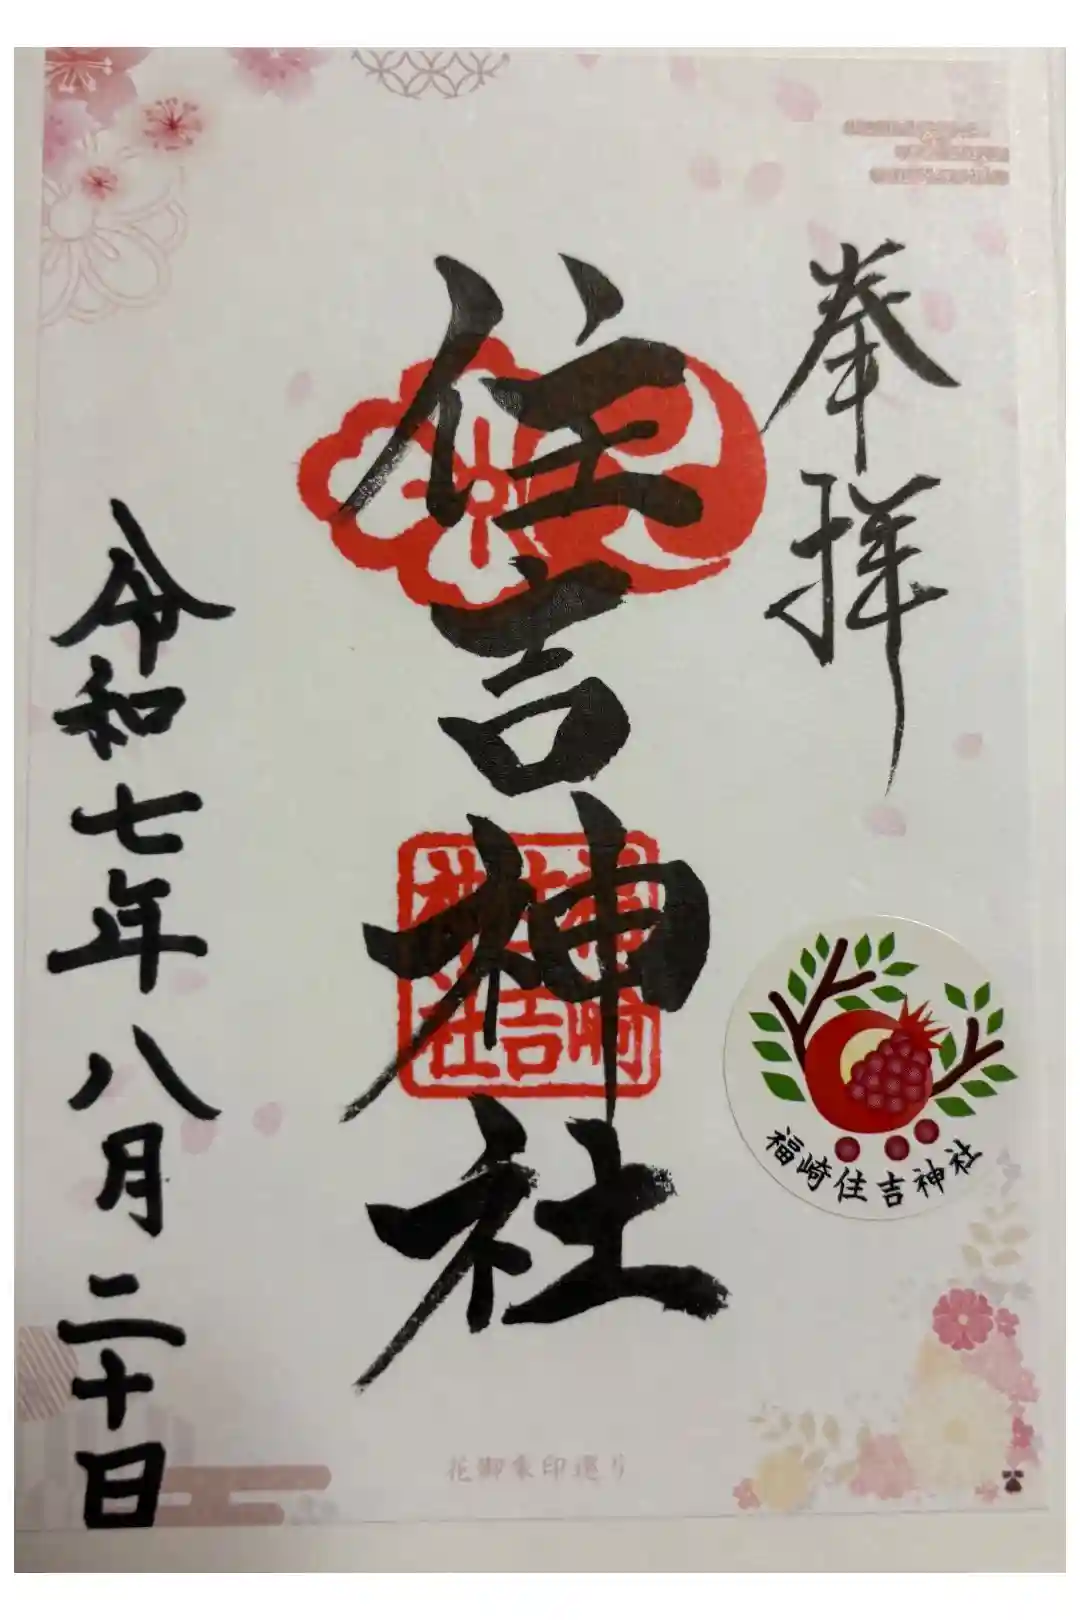 奉拝
住吉神社
福崎
住吉
神社
福崎住吉神社
令和七年八月二十日
花御朱印巡り